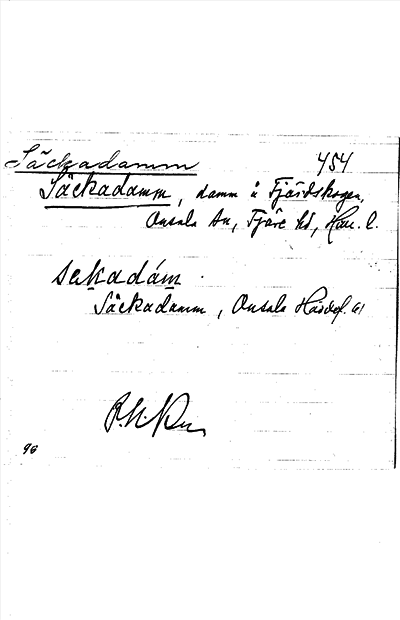 Säckadamm 454
Säckadamm, damm å Fjärdskogen,
Onsala sn, Fjäre hd, Hall. l.
sekadám
Säckadamm, Onsala
96